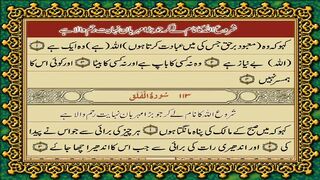 شروع اللہ کا نام لے کر جو بڑا مہربان نہایت رحم والا ہے
کہو کہ وہ (معبود برحق جس کی میں عبادت کرتا ہوں) اللہ (ہے) وہ ایک ہے
(اللہ) بے نیاز ہے وہ نہ کسی کا باپ ہے اور نہ کسی کا بیٹا اور کوئی اس کا
ہمسر نہیں
۱۱۳ سورۃ الفلق
شروع اللہ کا نام لے کر جو بڑا مہربان نہایت رحم والا ہے
کہو کہ میں صبح کے مالک کی پناہ مانگتا ہوں ہر چیز کی برائی سے جو اس نے پیدا
کی اور اندھیری رات کی برائی سے جب اس کا اندھیرا چھا جائے